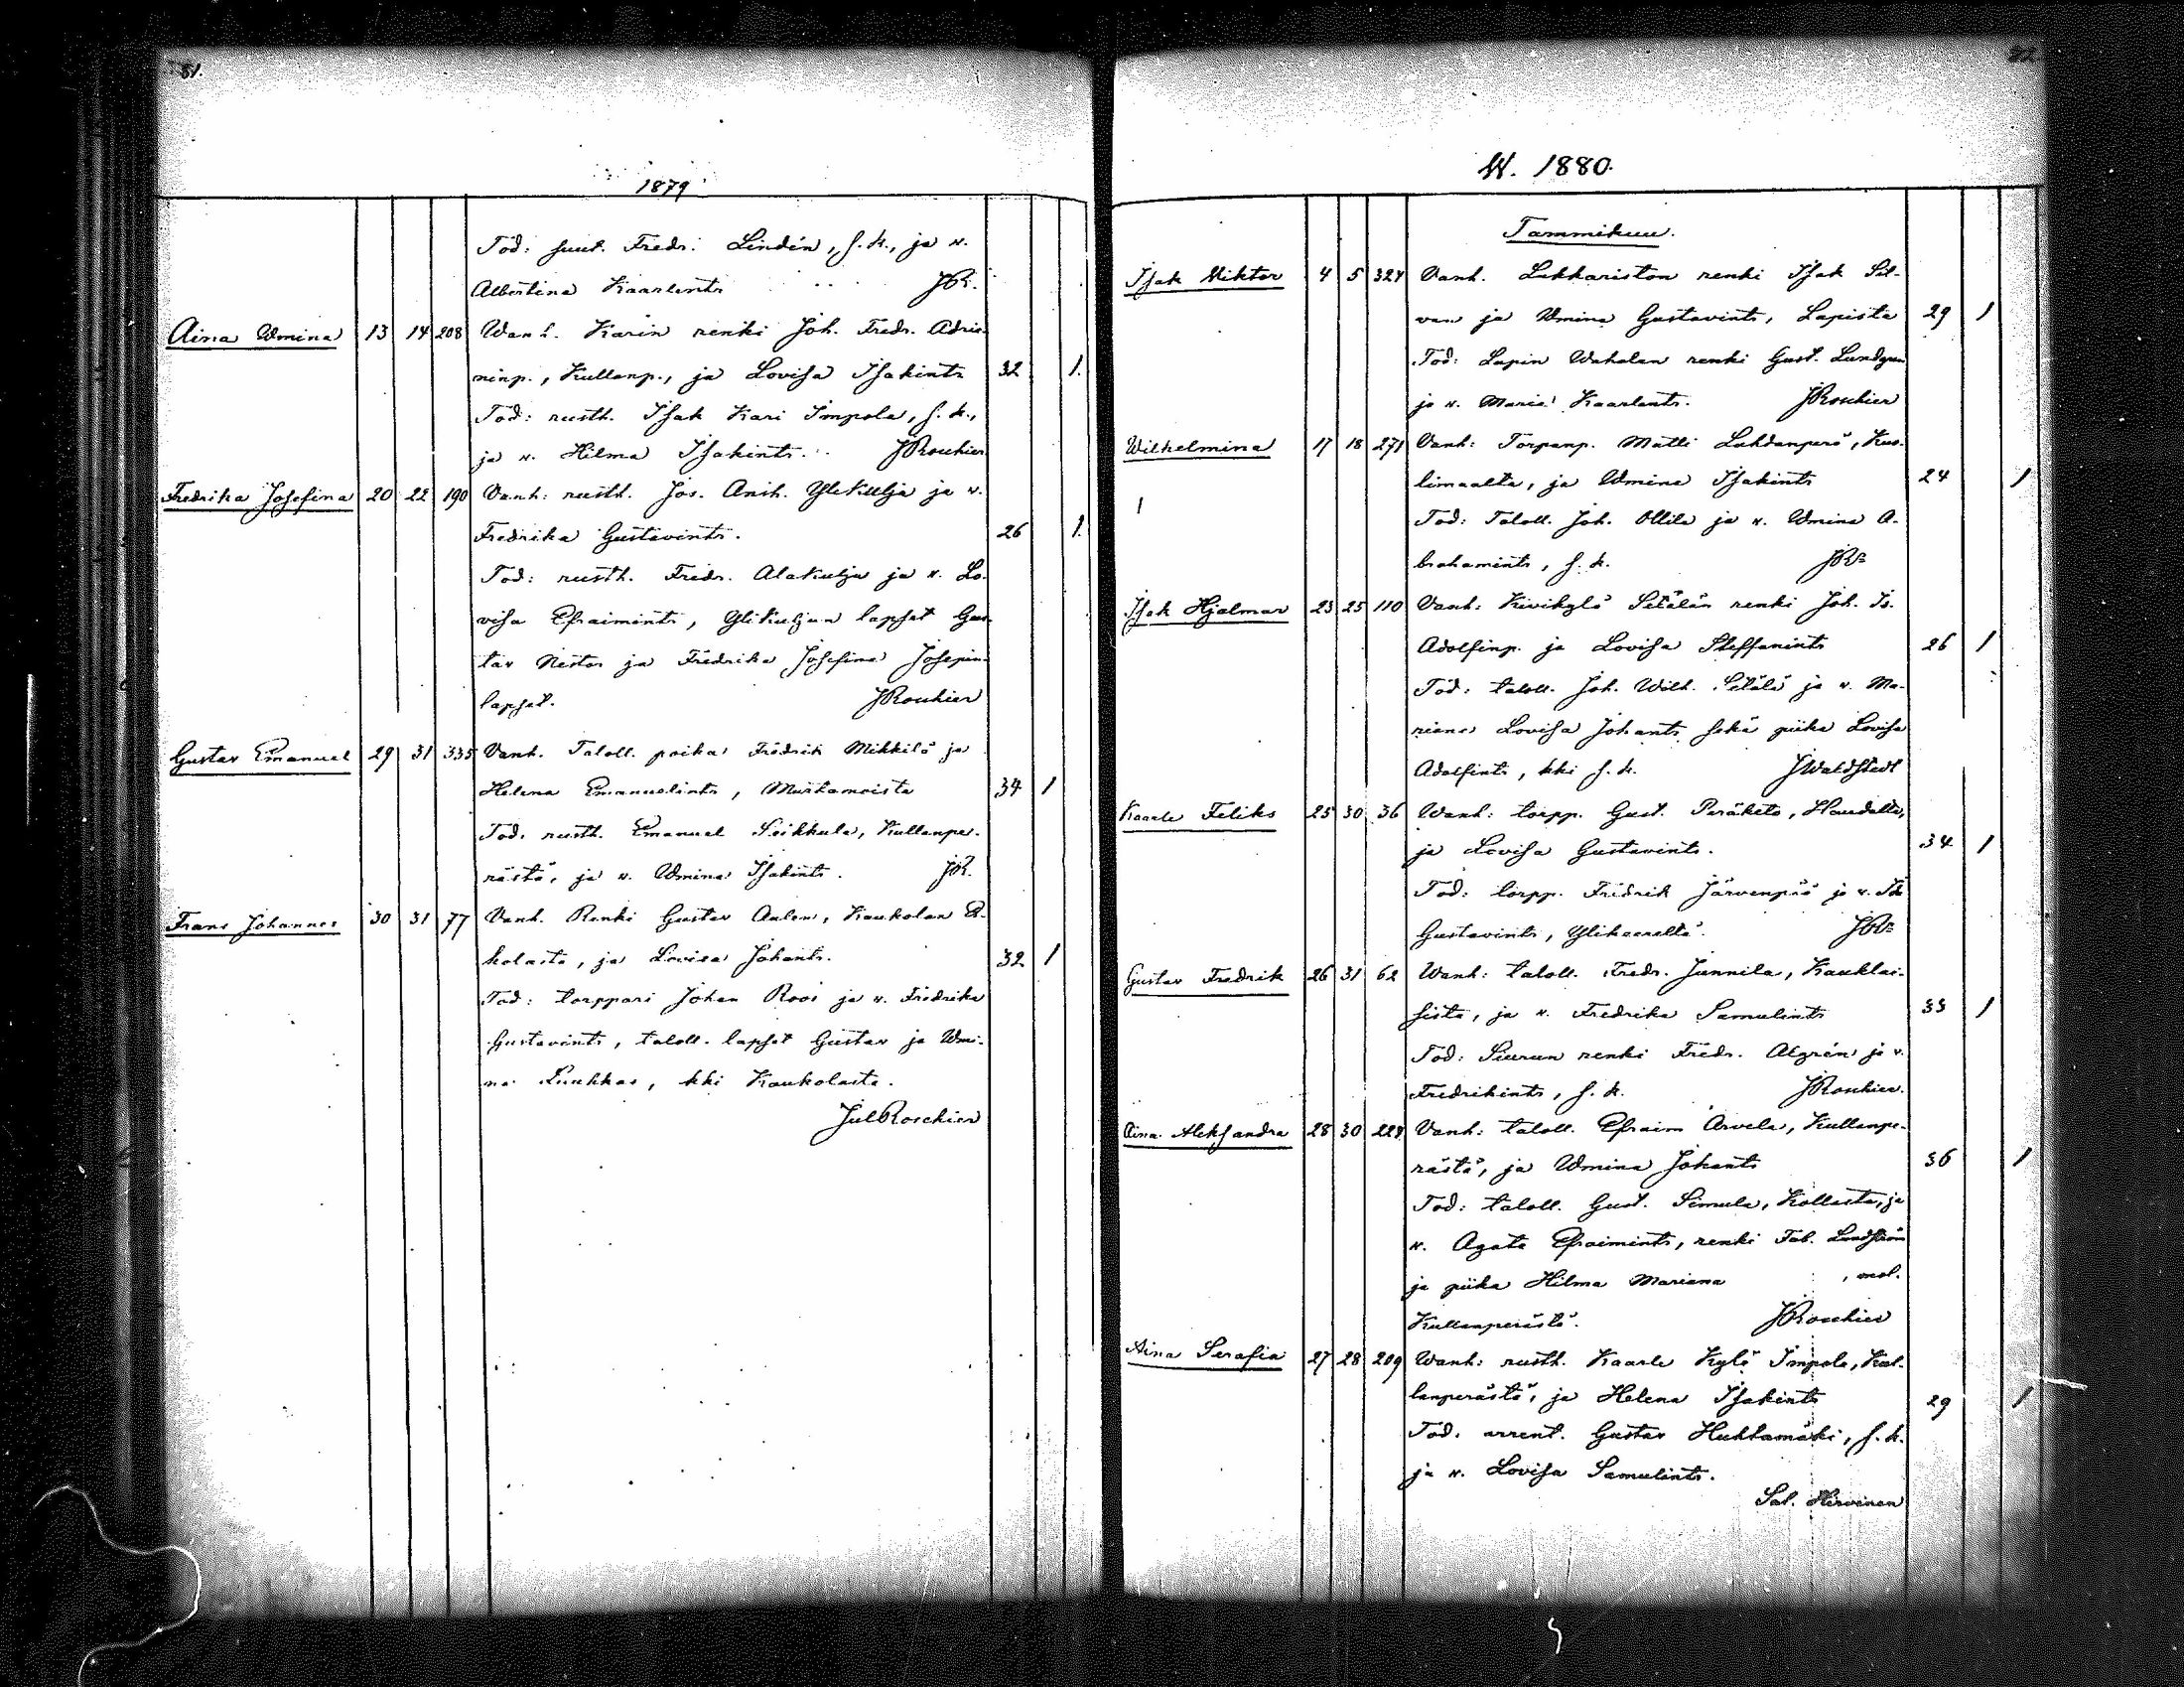 81.
1879
Tod: suut. Fredr. Lindén, s. k., ja v.
Albertina Kaarlentr JR.
Aina Wmina 13 14 208 Wanh. Karin renki Joh. Fredr. Adria-
ninp., Kullanp., ja Lovisa Isakintr 32 1.
Tod: rusth. Isak Kari Impola, s. k.,
ja v. Hilma Isakintr. JRoschier
Fredrika Josefina 20 22 190 Vanh: rusth. Jos. Ansh. Ylikulja ja v.
Fredrika Gustavintr. 26 1.
Tod: rusth. Fredr. Alakulja ja v. Lo-
visa Efraimintr, Ylikuljan lapset Gus-
tav Nestor ja Fredrika Josefina Josepin-
lapset. JRoschier
Gustav Emanuel 29 31 335 Vanh. Taloll. poika Fredrik Mikkilä ja
Helena Emanuelintr, Mustamoista 34 1
Tod. rusth. Emanuel Seikkula, Kullanpe-
rästä, ja v. Wmina Isakintr. JR.
Frans Johannes 30 31 77 Vanh. Renki Gustav Aalen, Kaukolan
kolasta, ja Lovisa Johantr. 32 1
Tod: torppari Johan Roos ja v. Fredrika
Gustavintr, taloll. lapset Gustav ja Wmi-
na kki Kaukolasta.
JulRoschier
82
W. 1880.
Tammikuu.
Isak Viktor 4 5 324 Vanh. Lukkariston renki Isak Sil-
van ja Wmina Gustavintr, Lapista 29 1
Tod: Lapin Wahalan renki Gust. Lundgren
ja v. Maria Kaarlentr. JRoschier
Wilhelmina 17 18 271 Vanh: Torpanp. Matti Lahdanperä, Kus-
limaalta, ja Wmina Isakintr 24 1
1 Tod: Taloll. Joh. Ollila ja v. Wmina A-
brahamintr, s. k. JR
Isak Hjalmar 23 25 110 Vanh: Kivikylä Setälän renki Joh. Is.
Adolfinp. ja Lovisa Steffanintr 26 1
Tod: taloll. Joh. Wilh. Setälä ja v. Ma-
riana Lovisa Johantr sekä piika Lovisa
Adolfintr, kki s. k. JWaldstedt
Kaarle Feliks 25 30 36 Wanh: torpp. Gust. Peräkoto, Haudalta,
ja Lovisa Gustavintr. 34 1
Tod: torpp. Fridrik Järvenpää ja v. Ida
Gustavintr, Ylikaaralta. JR
Gustav Fredrik 26 31 62 Wanh: taloll. Fredr. Junnila, Kauklai-
sista, ja v. Fredrika Samulintr 33 1
Tod: Siurun renki Fredr. Algrén ja v.
Fredrikintr, s. k. JRoschier.
Aina Aleksandra 28 30 228 Vanh: taloll. Efraim Arvela, Kullanpe-
rästä, ja Wmina Johantr 36 1
Tod: taloll. Gust. Simula, Kollasta, ja
v. Agata Efraimintr, renki Fab. Lundström
ja piika Hilma Mariana , mol.
Kullanperästä. JRoschier
Aina Serafia 27 28 209 Wanh: rusth. Kaarle Kylä Impola, Kul-
lanperästä, ja Helena Isakintr 29 1
Tod. arrent. Gustav Huhtamäki, s. k.
ja v. Lovisa Samulintr.
Sal. Hirvinen